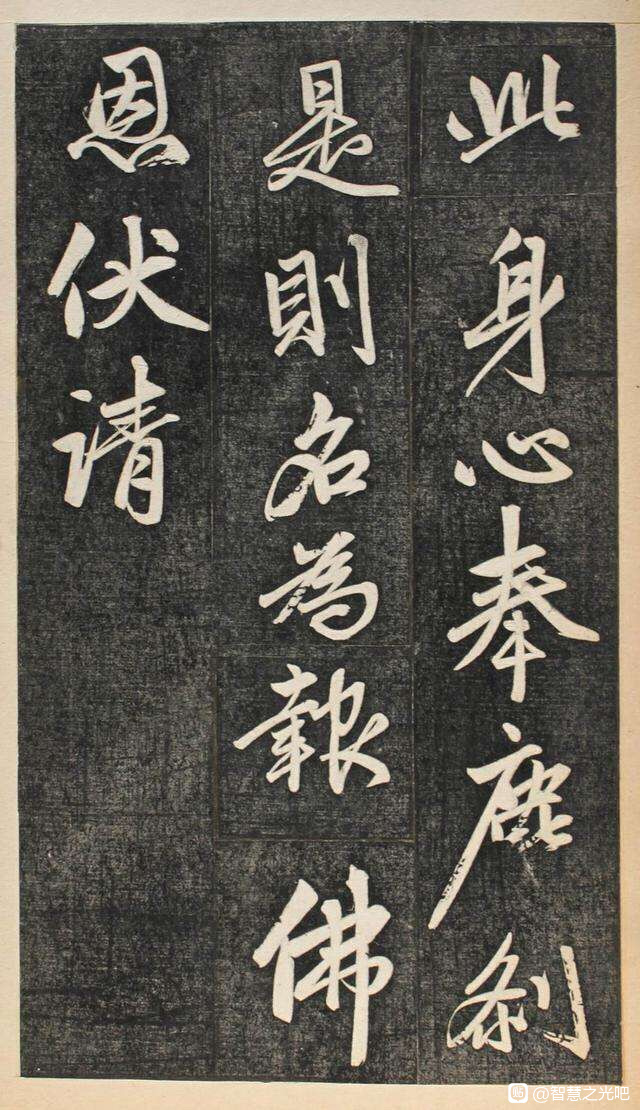 此身心奉塵刹
是則名為報佛
恩伏请
贴 @智慧之光吧